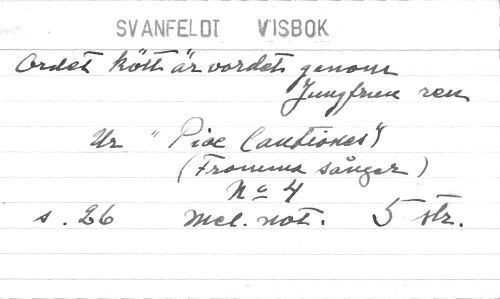 SVANFELDT VISBOK
Ordet kött är vordet genom
Jungfrun ren
Ur "Piae Cantiones"
(Fromma sånger)
No 4
s. 26 Mel. not. 5 str.